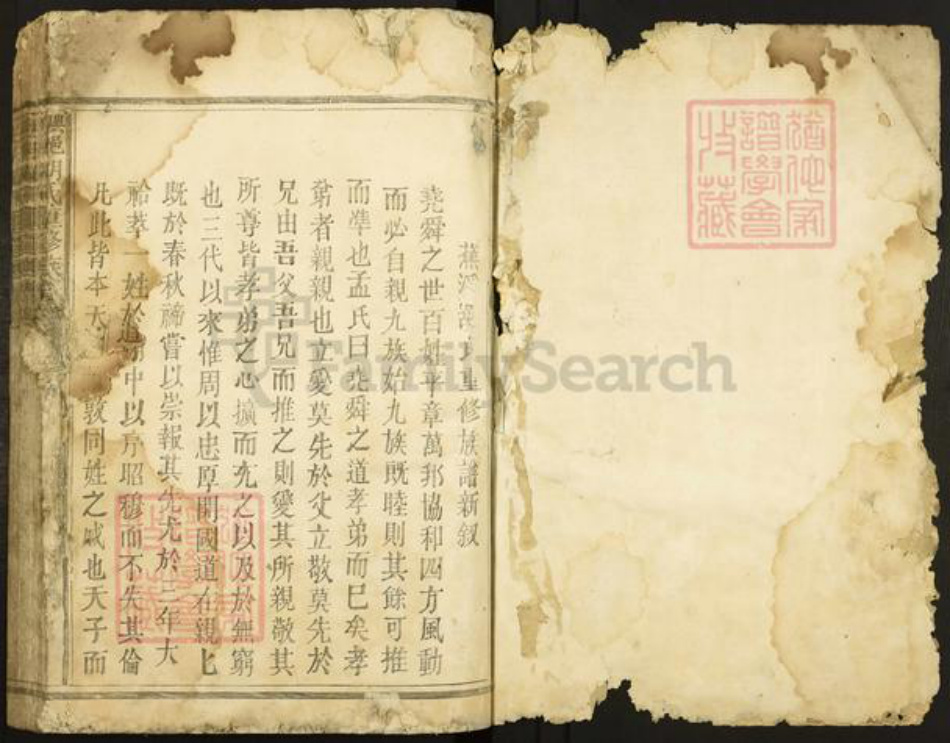 猶他家
譜學會
收藏
修族譜新叙
堯舜之世百姓平章萬邦協和四方風動
而必自親九族始九族既睦則其餘可推
而準也孟氏曰堯舜之道孝弟而巳矣孝
弟者親親也立愛莫先於父立敬莫先於
兄由吾父吾兄而推之則愛其所親敬其
所尊皆孝弟之心擴而充之以及於無窮
也三代以來惟周以忠厚開國道在親匕
既於春秋禘嘗以崇報其先尤於三年大
祫萃一姓於廟中以序昭穆而不失其倫
凡此皆本天敦同姓之戚也天子而
邑胡氏重修族
FamilySearch